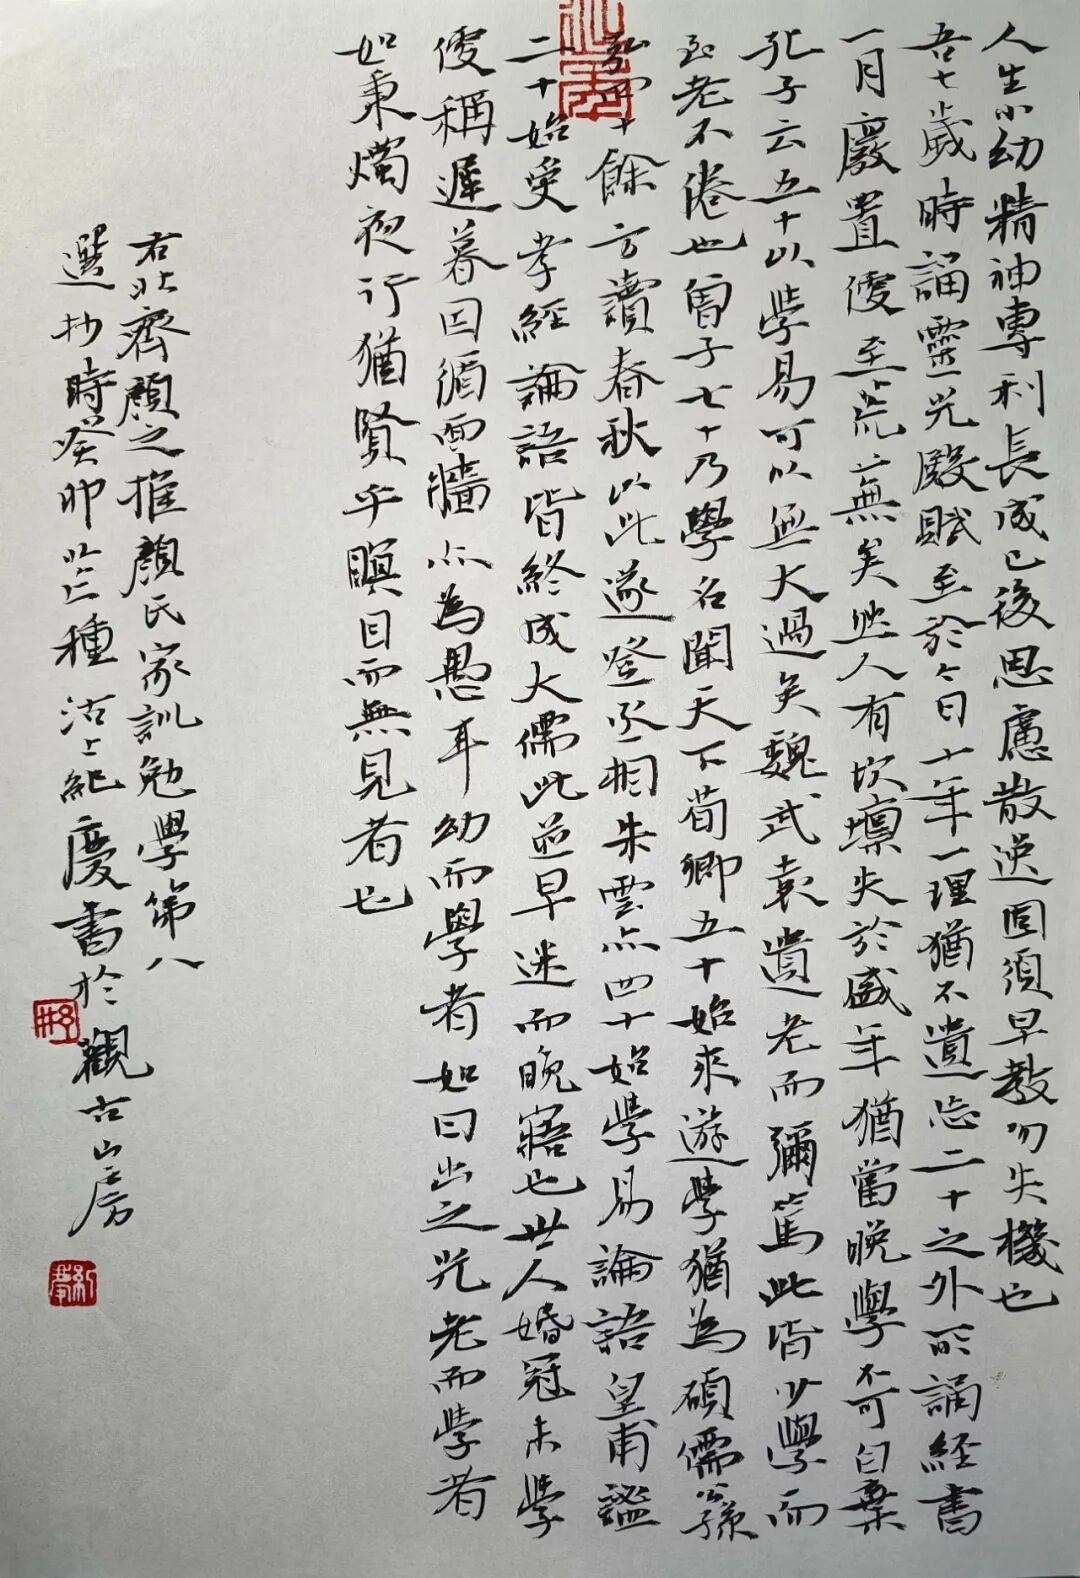 人生小幼精神專利長成已後思慮散逸固須早教勿失機也
吾七歲時誦靈光殿賦至於今日十年一理猶不遺忘二十之外所誦經書
一月廢置便至荒蕪矣然人有坎壈失於盛年猶當晚學不可自棄
孔子云五十以學易可以無大過矣魏武袁遺老而彌篤此皆少學而
至老不倦也曾子七十乃學名聞天下荀卿五十始來遊學猶為碩儒公孫
弘四十餘方讀春秋以此遂登丞相朱雲亦四十始學易論語皇甫謐
二十始受孝經論語皆終成大儒此並早迷而晚寤也世人婚冠未學
便稱遲暮因循面牆亦為愚耳幼而學者如日出之光老而學者
如秉燭夜行猶賢乎瞑目而無見者也
右北齊顏之推顏氏家訓勉學第八
選抄時癸卯芒種沽上紀慶書於觀古山房